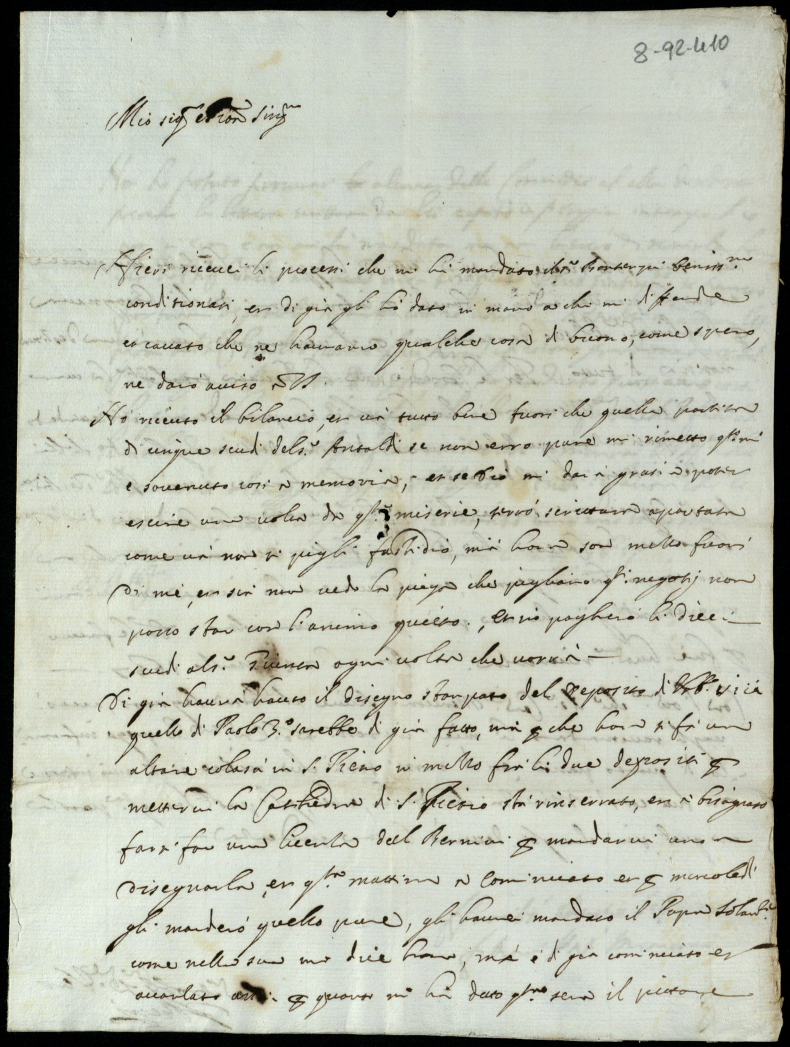 8-92-410
Mio sig.r et
Hieri riceuei li processi che mi hà mandato
conditionati, et di già gli hò dato in mano a chi mi difende
che ne haurano qualche cosa di buono, come spero,
ne darò auiso à VS.
Hò riceuto il bilancio, et uà tutto bene fuori che quella partita
di cinque scudi del s.r Antaldi se non erro pure mi rimetto
e souenuto cosi a memoria, et se Dio mi darà gratia poter
escire una uolta da q.te miserie, terrò scrittura apartata
come uà non si pigli fastidio, mà hora son mezzo fuori
di me, et sin non uedo la piega che pigliano q.ti negotij non
posso star con l'animo quieto, et io pagherò li dieci
scudi al s.r ogni uolta che uorrà
Di già haurà hauto il disegno stampato del deposito di Urb.o
quello di Paolo 3.o sarebbe di già fatto, mà p che hora si fà un
altare colasù in S. Pietro in mezzo fra li due depositi p
metterui la Cathedra di S. Pietro stà rinserrato, et à bisognato
farsi far una licenza dal Bernini p mandarui uno a
disegnarlo, et q.ta mattina a cominciato et p mercoledi
gli manderò quello pure, gli haurei mandato il Papa
come nella sua mi dice hora, mà è di già cominciato et
auanzato p quanto mi hà detto q.ta sera il pittore